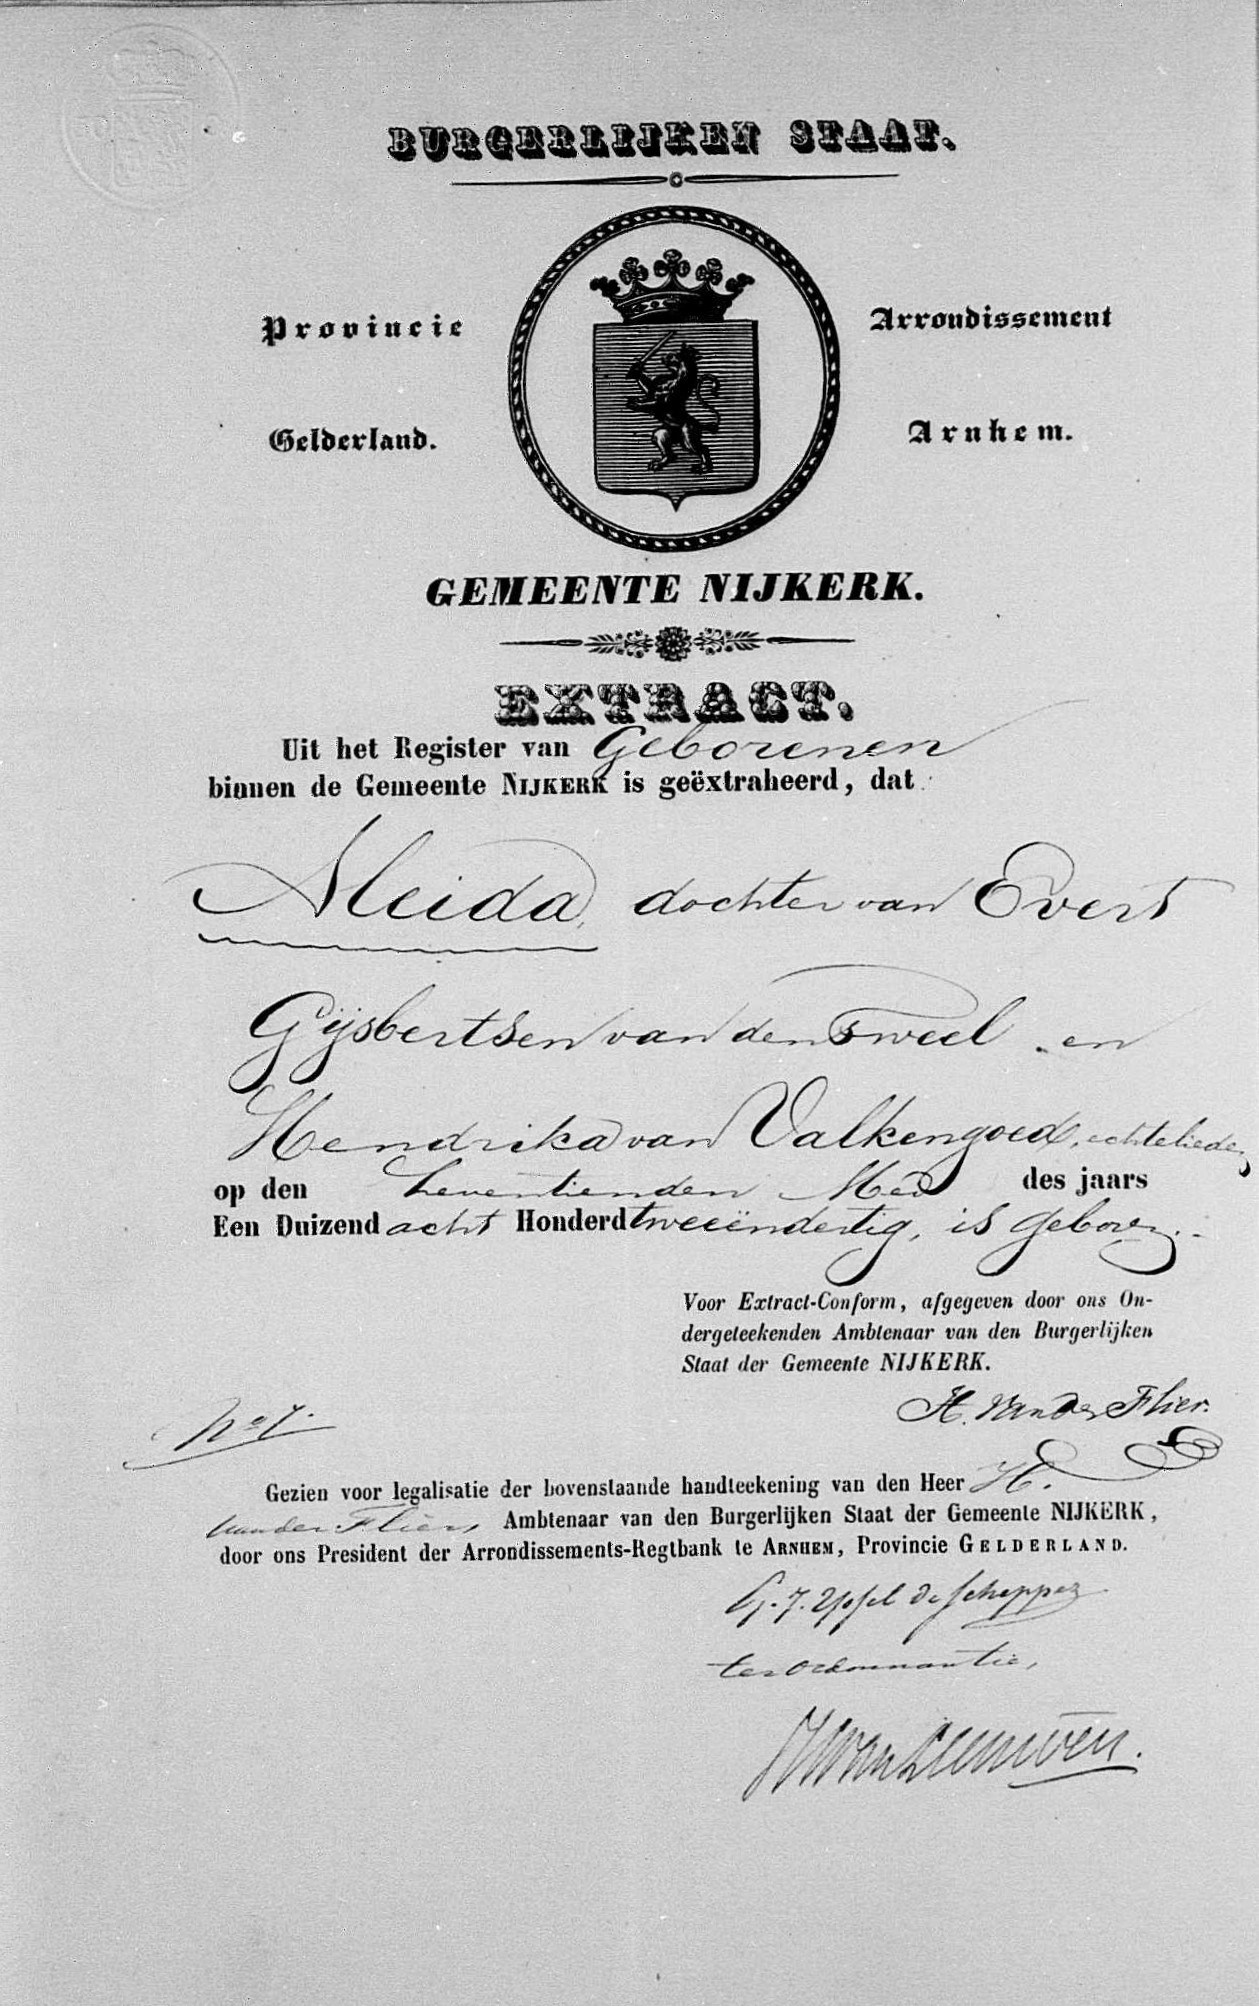 BURGERLIJKEN STAAT.
Provincie
Arrondissement
Gelderland.
Arnhem.
GEMEENTE NIJKERK.
EXTRACT.
Uit het Register van Geborenen
binnen de Gemeente NIJKERK is geëxtraheerd, dat
Aleida, dochter van Evert
Gijsbertsen van den Tweel en
Hendrika van Valkengoed, echtelieden
op den Zeventienden Mei des jaars
Een Duizend acht Honderd tweeëndertig, is geboren.
Voor Extract-Conform, afgegeven door ons On-
dergeteekenden Ambtenaar van den Burgerlijken
Staat der Gemeente NIJKERK.
H. van der Flier.
No 7.
Gezien voor legalisatie der bovenstaande handteekening van den Heer H.
van der Flier, Ambtenaar van den Burgerlijken Staat der Gemeente NIJKERK,
door ons President der Arrondissements-Regtbank te ARNHEM, Provincie GELDERLAND.
de Schepper
ter ordonnantie,
van Leeuwen.